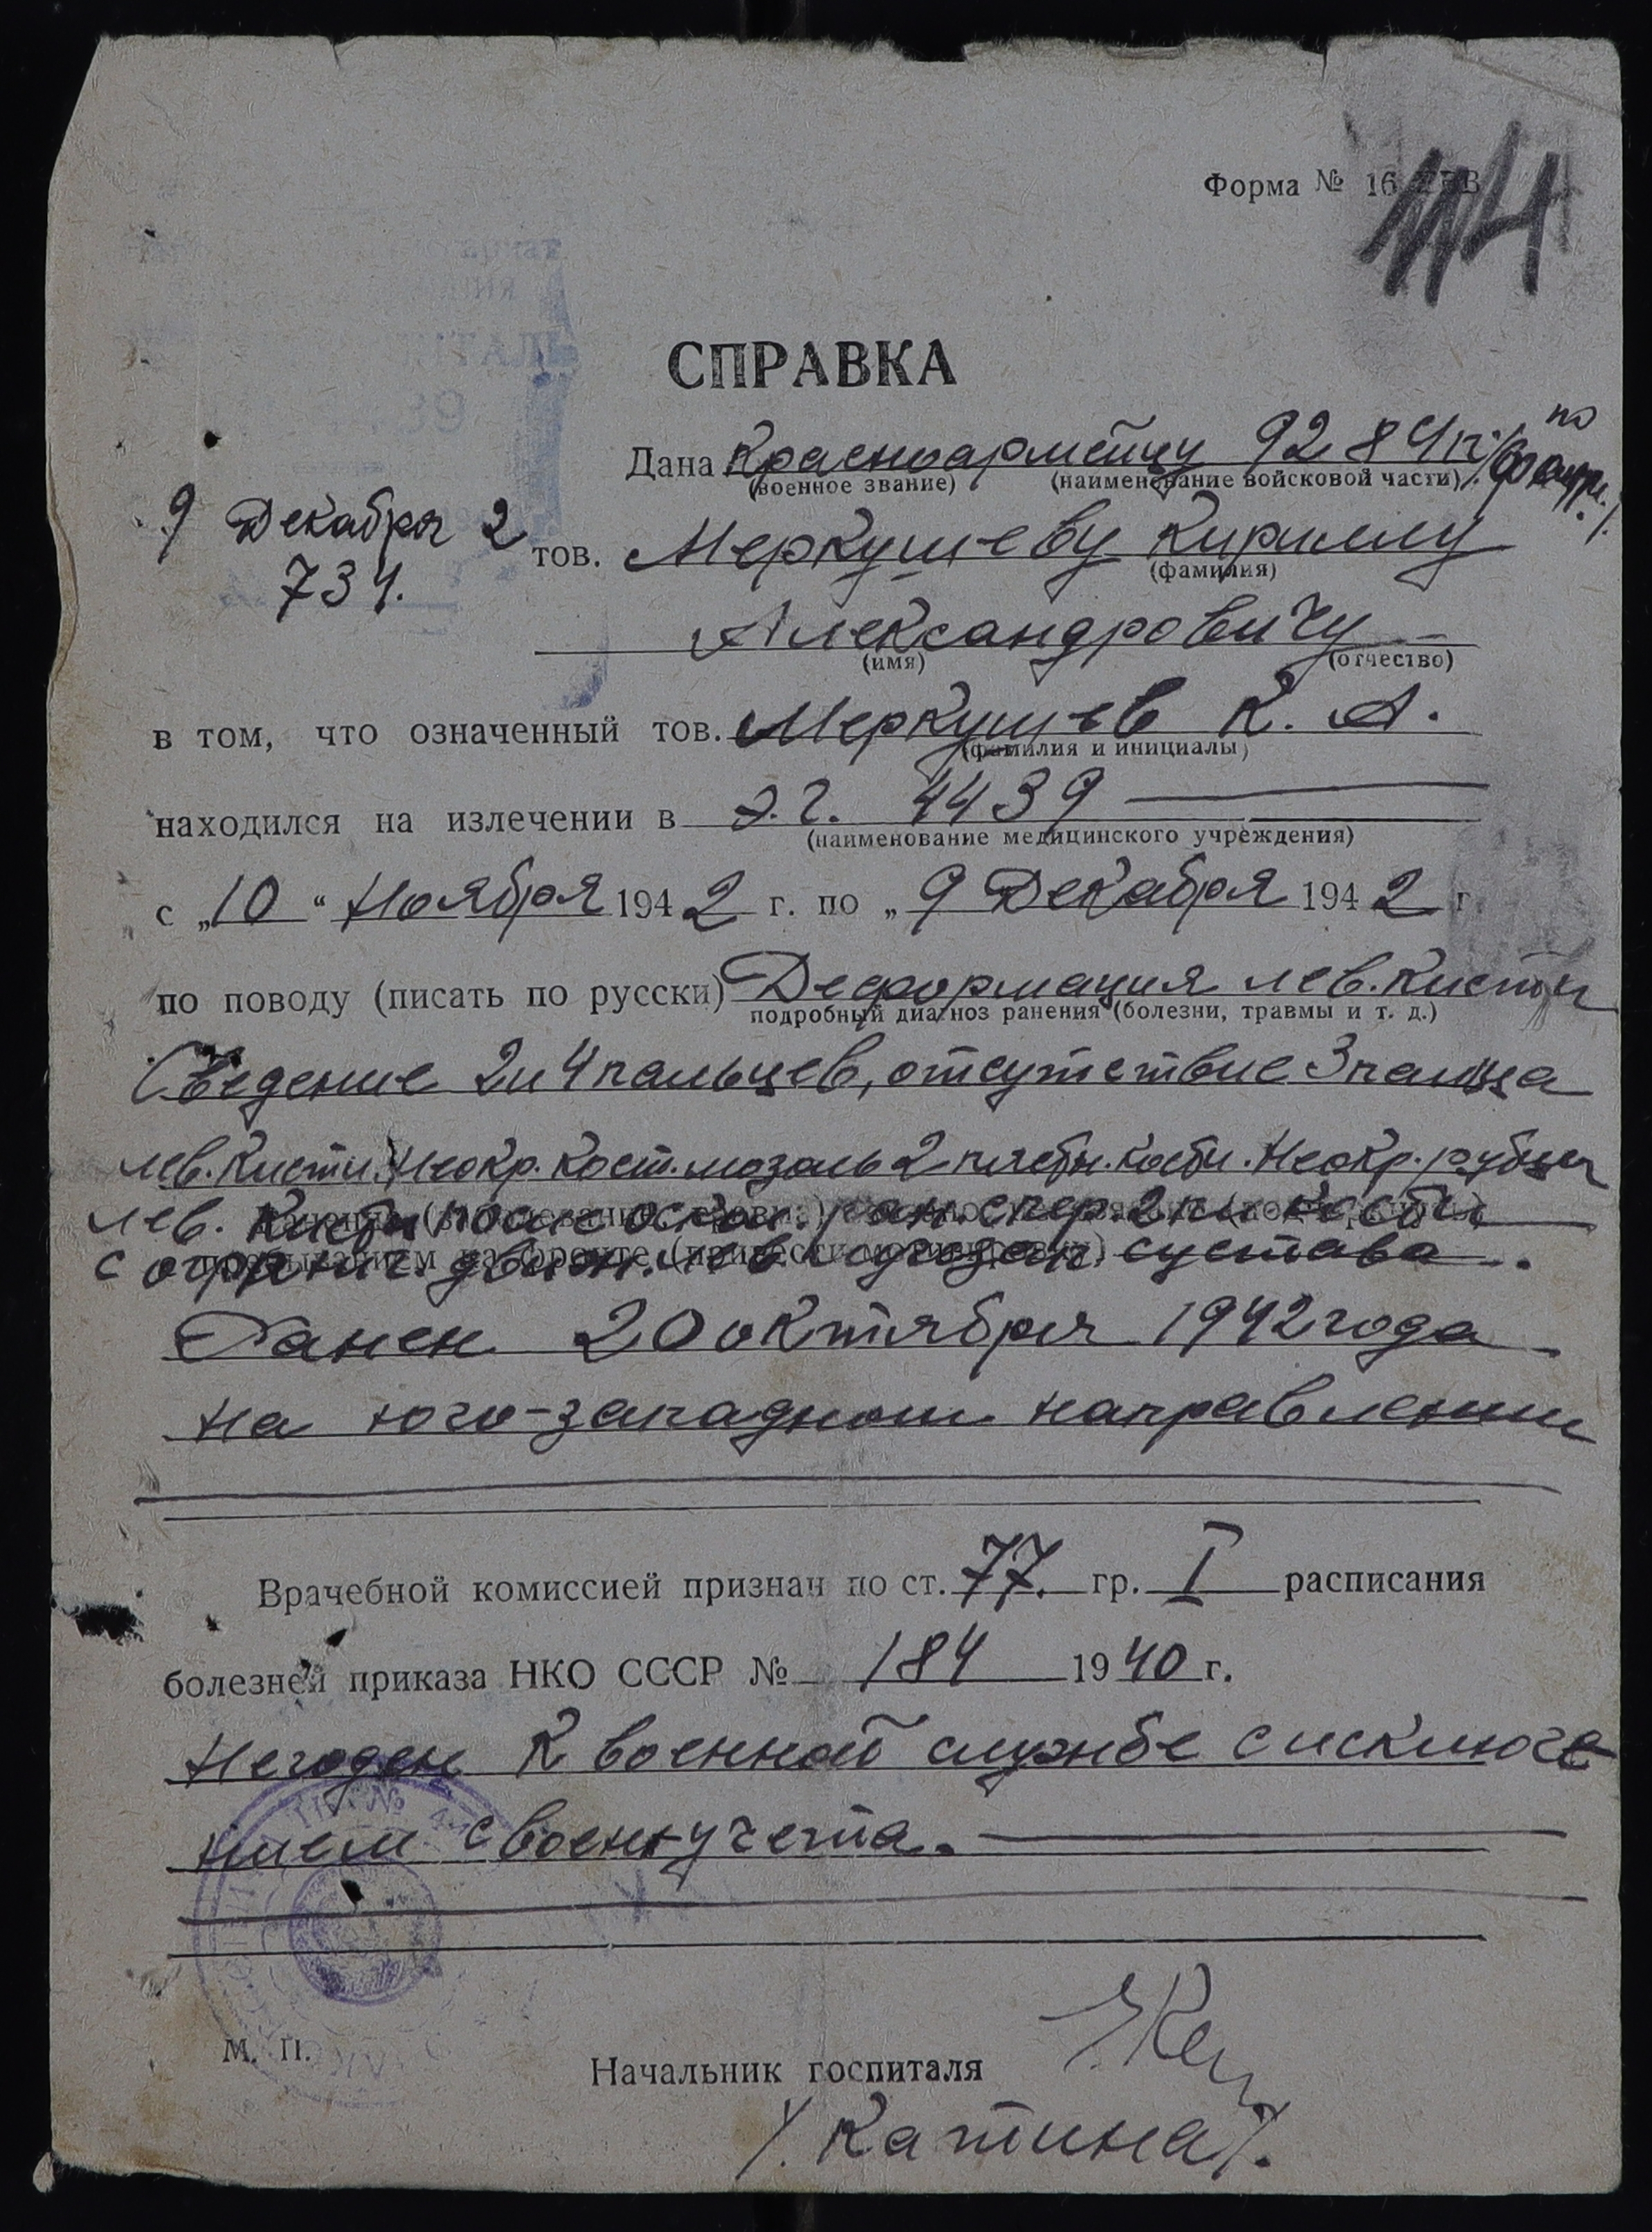 Форма № 16
114
СПРАВКА
Дана Красноармейцу 9284
(военное звание) (наименование войсковой части)
9 Декабря 2
734.
тов. Меркушеву Кириллу
(фамилия)
Александровичу
(имя) (отчество)
в том, что означенный тов. Меркушев К. А.
(фамилия и инициалы)
находился на излечении в э.г. 4439
(наименование медицинского учреждения)
с „10“ Ноября 1942 г. по „9 Декабря 1942 г.
по поводу (писать по русски) Деформация лев. кисти
подробный диагноз ранения (болезни, травмы и т. д.)
Сведение 2 и 4 пальцев, отсутствие 3 пальца
лев. кисти. Неокр. кост. мозоль 2 пястн. кости. Неокр. рубцы
лев. кисти после оскол. ран. с пер. 2 п. кости
с огранич. движ. лев. лучезап. сустава.
Ранен 20 октября 1942 года
на юго-западном направлении
Врачебной комиссией признан по ст. 77. гр. I расписания
болезней приказа НКО СССР № 184 1940 г.
Негоден к военной службе с исключе
нием с воен. учета.
М. П.
Начальник госпиталя
/Катина/.